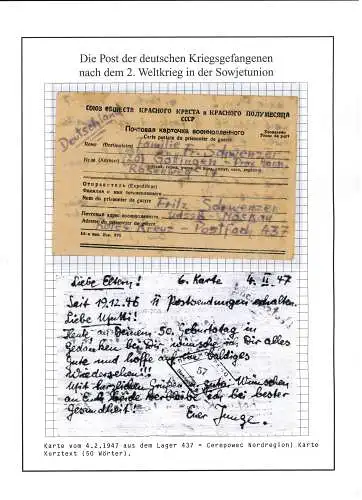 Die Post der deutschen Kriegsgefangenen
nach dem 2. Weltkrieg in der Sowjetunion
СОЮЗ ОБЩЕСТВ КРАСНОГО КРЕСТА и КРАСНОГО ПОЛУМЕСЯЦА
СССР
Почтовая карточка военнопленного
Carte postale du prisonnier de guerre
Deutschland
Кому (Destinataire) Familie F. Schwenzer
(20) Göttingen
Отправитель (Expéditeur)
Фамилия и имя военнопленного
Nom du prisonnier de guerre Fritz Schwenzer
Почтовый адрес военнопленного UdSSR - Moskau
Adresse du prisonnier de guerre Rotes Kreuz - Postfach 437
Liebe Eltern! 6. Karte 4. II 47
Seit 19.12.46 11 Postsendungen erhalten.
Liebe Mutti!
Heute an Deinem 50. Geburtstag in
Gedanken bei Dir wünsche ich Dir alles
Gute und hoffe auf ein baldiges
Wiedersehen!!!
Mit herzlichen Grüßen u. guten Wünschen
an E. beide verbleibe ich bei bester
Gesundheit! Euer Junge.
57
Karte vom 4.2.1947 aus dem Lager 437 = Cerepowec Nordregion) Karte
Kurztext (50 Wörter),